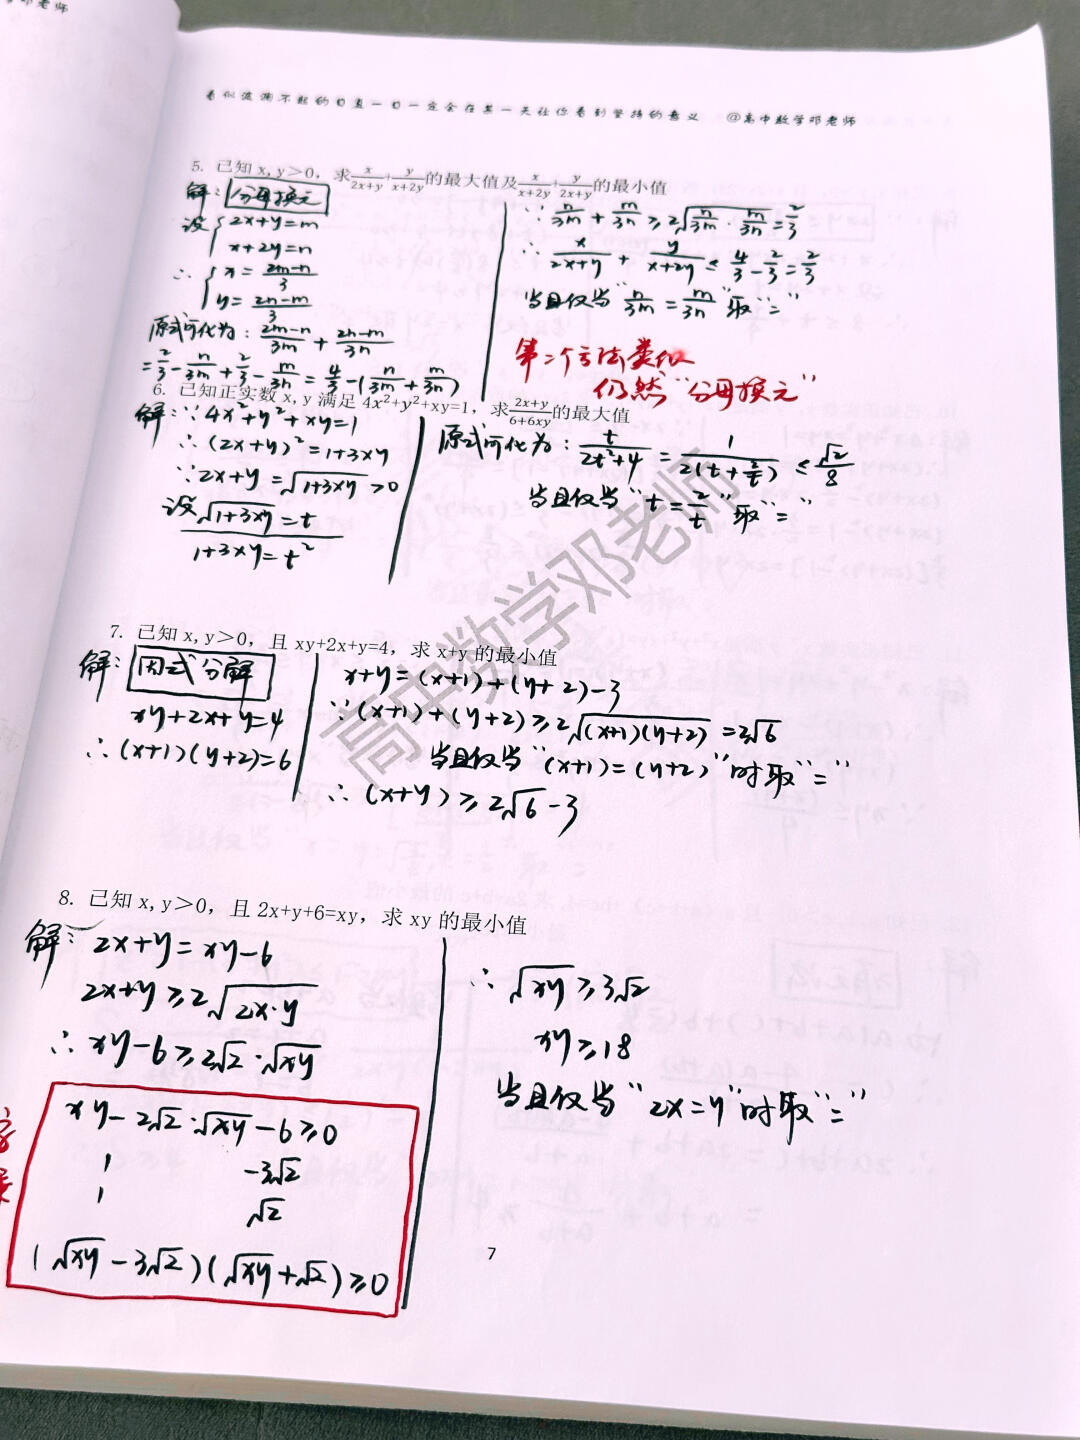 邓老师
看似波澜不起的日复一日一定会在某一天让你看到坚持的意义 @高中数学邓老师
5. 已知 x,y＞0，求 x/(2x+y) + y/(x+2y) 的最大值及 x/(x+2y) + y/(2x+y) 的最小值
解：分母换元
设 { 2x+y=m
x+2y=n
∴ { x = (2m-n)/3
y = (2n-m)/3
原式可化为：(2m-n)/3m + (2n-m)/3n
= 2/3 - n/3m + 2/3 - m/3n = 4/3 - (n/3m + m/3n)
∵ n/3m + m/3n ≥ 2√(n/3m · m/3n) = 2/3
∴ x/(2x+y) + y/(x+2y) ≤ 4/3 - 2/3 = 2/3
当且仅当“n/3m = m/3n”取“=”
第二个方法类似
仍然“分母换元”
6. 已知正实数 x,y 满足 4x²+y²+xy=1，求 (2x+y)/(6+6xy) 的最大值
解：∵ 4x²+y²+xy=1
∴ (2x+y)²=1+3xy
∵ 2x+y=√(1+3xy)>0
设 √(1+3xy)=t
1+3xy=t²
原式可化为：t/(2t²+4) = 1/(2(t+2/t)) ≤ √2/8
当且仅当“t=2/t”取“=”
7. 已知 x,y＞0，且 xy+2x+y=4，求 x+y 的最小值
解：因式分解
xy+2x+y=4
∴ (x+1)(y+2)=6
x+y=(x+1)+(y+2)-3
∵ (x+1)+(y+2)≥2√((x+1)(y+2))=2√6
当且仅当“(x+1)=(y+2)”时取“=”
∴ (x+y)≥2√6-3
8. 已知 x,y＞0，且 2x+y+6=xy，求 xy 的最小值
解：2x+y=xy-6
2x+y≥2√(2x·y)
∴ xy-6≥2√2·√xy
xy-2√2·√xy-6≥0
1 -3√2
1 √2
(√xy-3√2)(√xy+√2)≥0
∴ √xy≥3√2
xy≥18
当且仅当“2x=y”时取“=”
高中数学邓老师
7